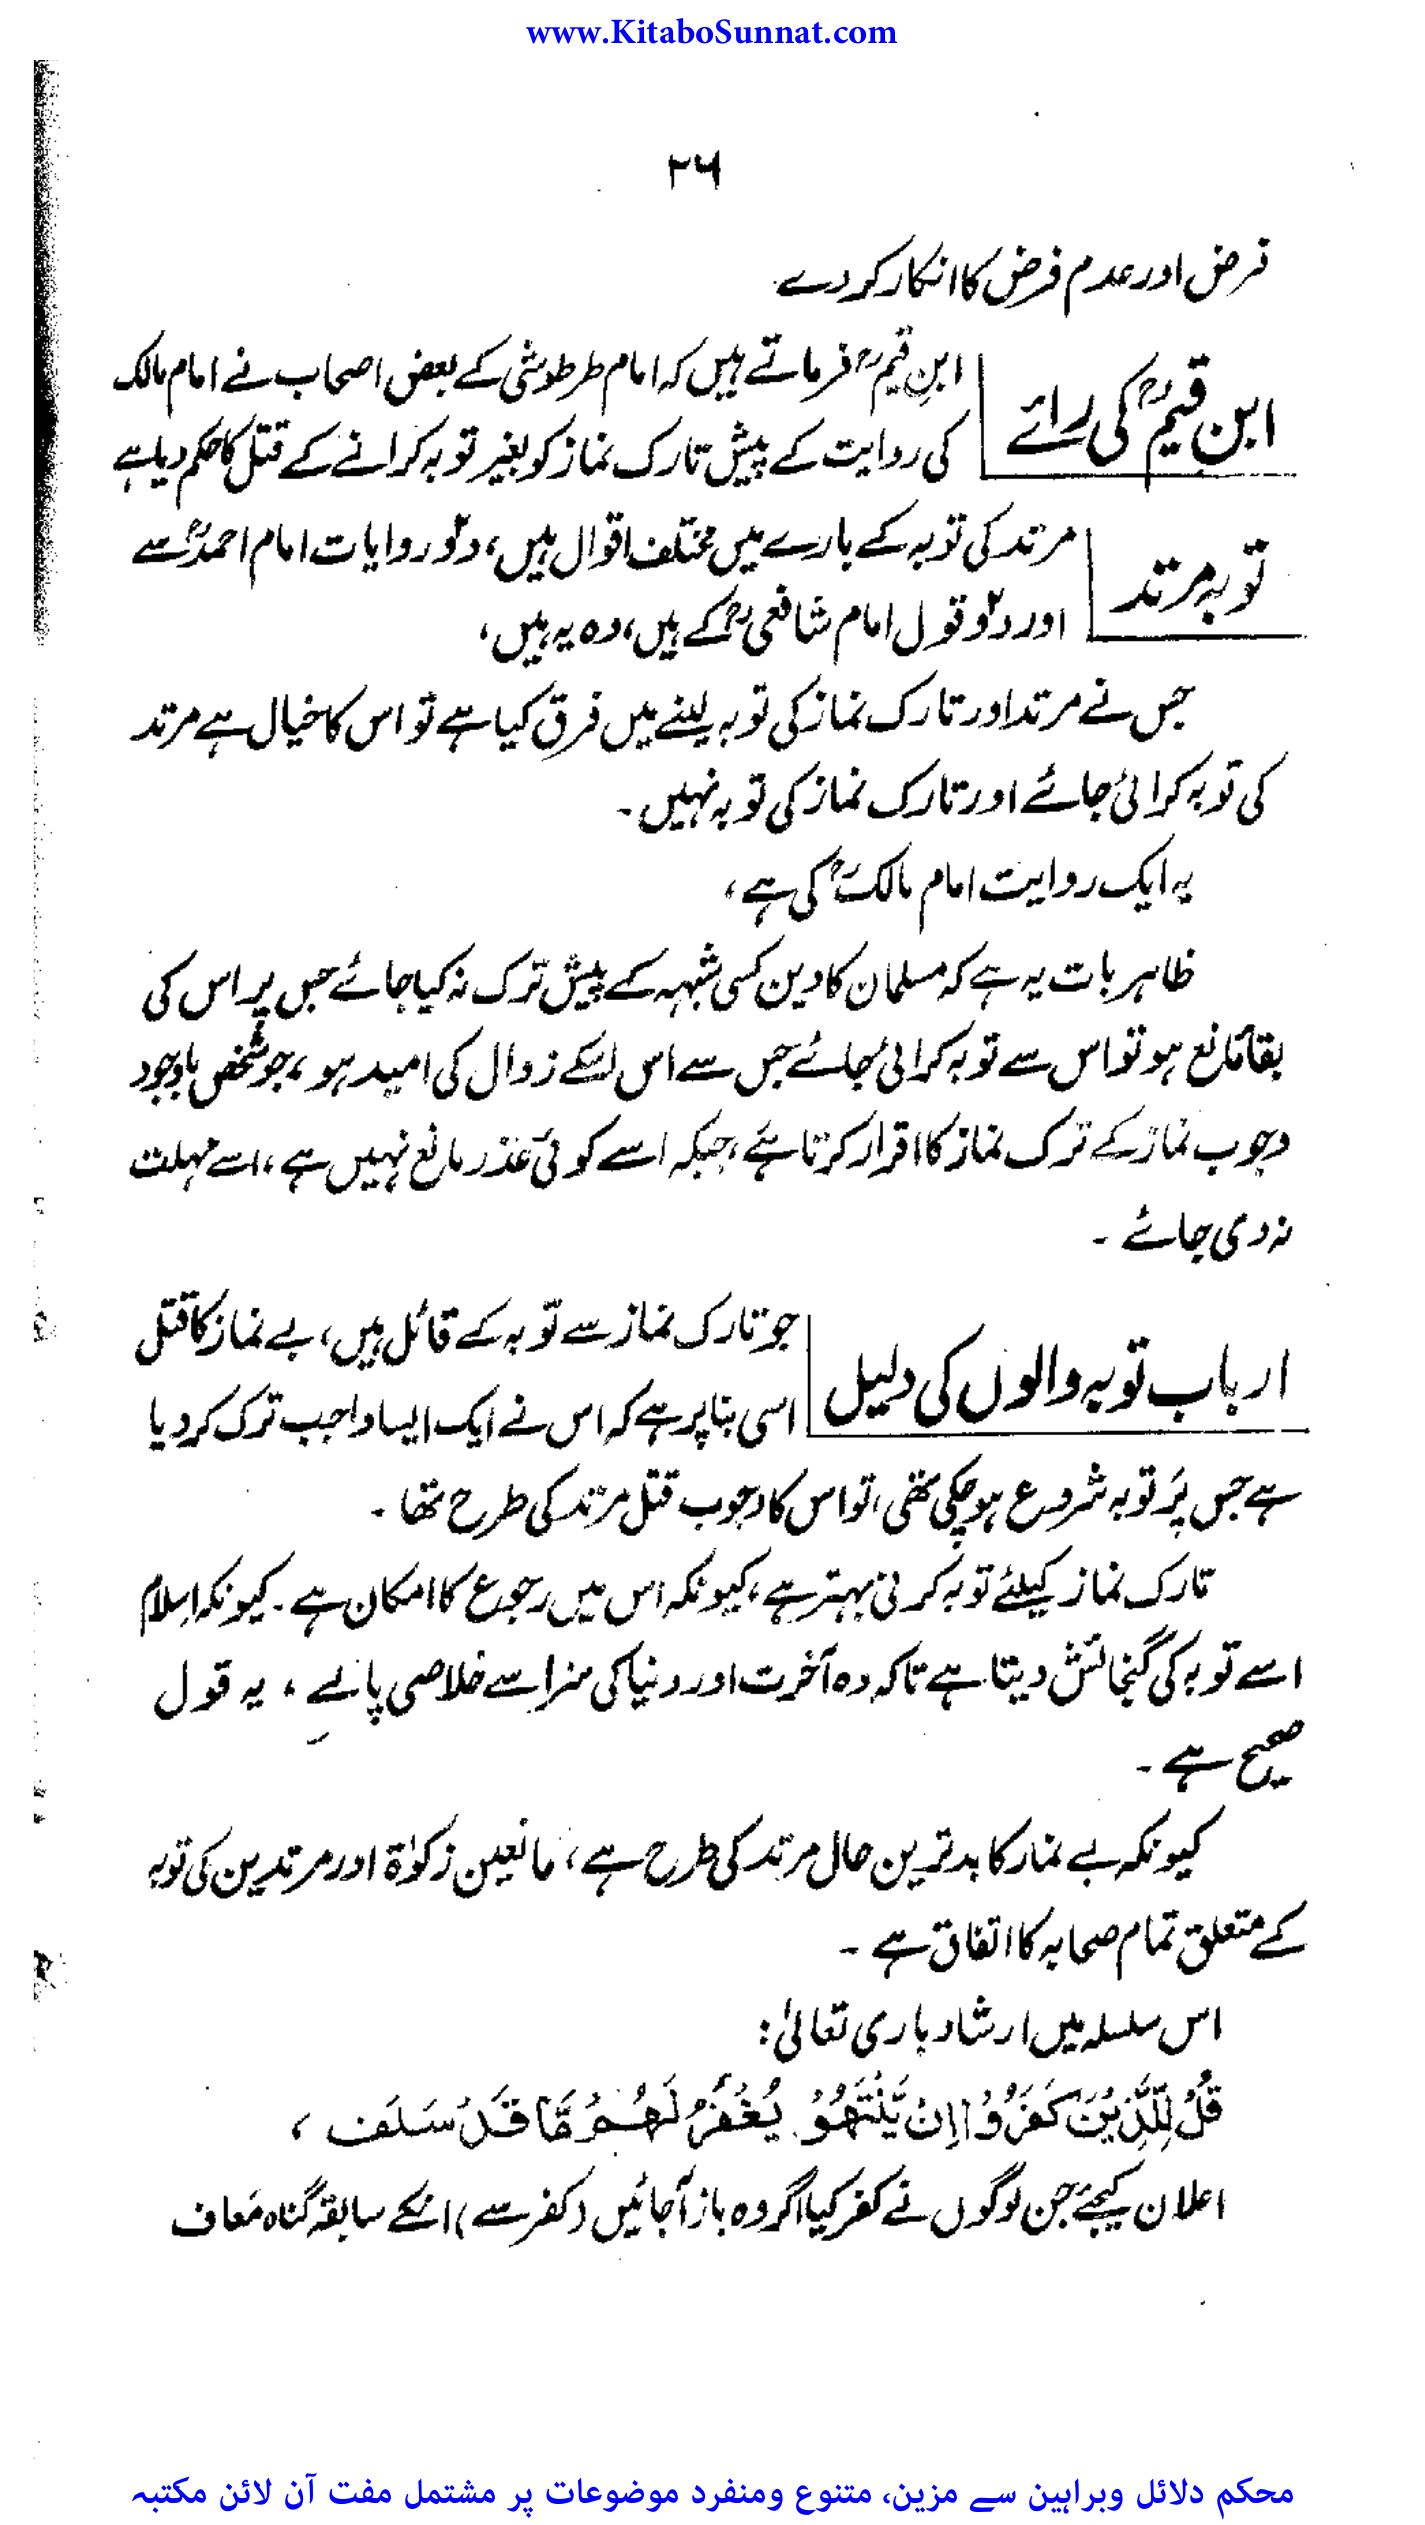 www.KitaboSunnat.com
۲۶
فرض اور عدم فرض کا انکار کر دے
ابن قیمؒ کی رائے
ابنِ قیمؒ فرماتے ہیں کہ امام طرطوشی کے بعض اصحاب نے امام مالک
کی روایت کے پیش تارک نماز کو بغیر توبہ کرانے کے قتل کا حکم دیا ہے
توبہ مرتد
مرتد کی توبہ کے بارے میں مختلف اقوال ہیں، دو روایات امام احمدؒ سے
اور دو قول امام شافعیؒ کے ہیں، وہ یہ ہیں،
جس نے مرتد اور تارک نماز کی توبہ لینے میں فرق کیا ہے تو اس کا خیال ہے مرتد
کی توبہ کرائی جائے اور تارک نماز کی توبہ نہیں۔
یہ ایک روایت امام مالکؒ کی ہے،
ظاہر بات یہ ہے کہ مسلمان کا دین کسی شبہہ کے پیش ترک نہ کیا جائے جس پر اس کی
بقا مانع ہو تو اس سے توبہ کرائی جائے جس سے اس کے زوال کی امید ہو، جو شخص باوجود
وجوب نماز کے ترک نماز کا اقرار کرتا ہے، جبکہ اسے کوئی عذر مانع نہیں ہے، اسے مہلت
نہ دی جائے ۔
ارباب توبہ والوں کی دلیل
جو تارک نماز سے توبہ کے قائل ہیں، بے نماز کا قتل
اسی بنا پر ہے کہ اس نے ایک ایسا واجب ترک کر دیا
ہے جس پر توبہ شروع ہو چکی تھی، تو اس کا وجوب قتل مرتد کی طرح تھا ۔
تارک نماز کیلئے توبہ کرنی بہتر ہے، کیونکہ اس میں رجوع کا امکان ہے ۔ کیونکہ اسلام
اسے توبہ کی گنجائش دیتا ہے تاکہ وہ آخرت اور دنیا کی سزا سے خلاصی پا لے ، یہ قول
صحیح ہے ۔
کیونکہ بے نماز کا بدترین حال مرتد کی طرح ہے، مانعین زکوٰۃ اور مرتدین کی توبہ
کے متعلق تمام صحابہ کا اتفاق ہے ۔
اس سلسلہ میں ارشاد باری تعالیٰ:
قُلْ لِّلَّذِيْنَ كَفَرُوْا اِنْ يَّنْتَهُوْ يُغْفَرْ لَهُمْ مَّا قَدْ سَلَفَ ،
اعلان کیجئے جن لوگوں نے کفر کیا اگر وہ باز آجائیں (کفر سے) انکے سابقہ گناہ معاف
محکم دلائل وبراہین سے مزین، متنوع ومنفرد موضوعات پر مشتمل مفت آن لائن مکتبہ